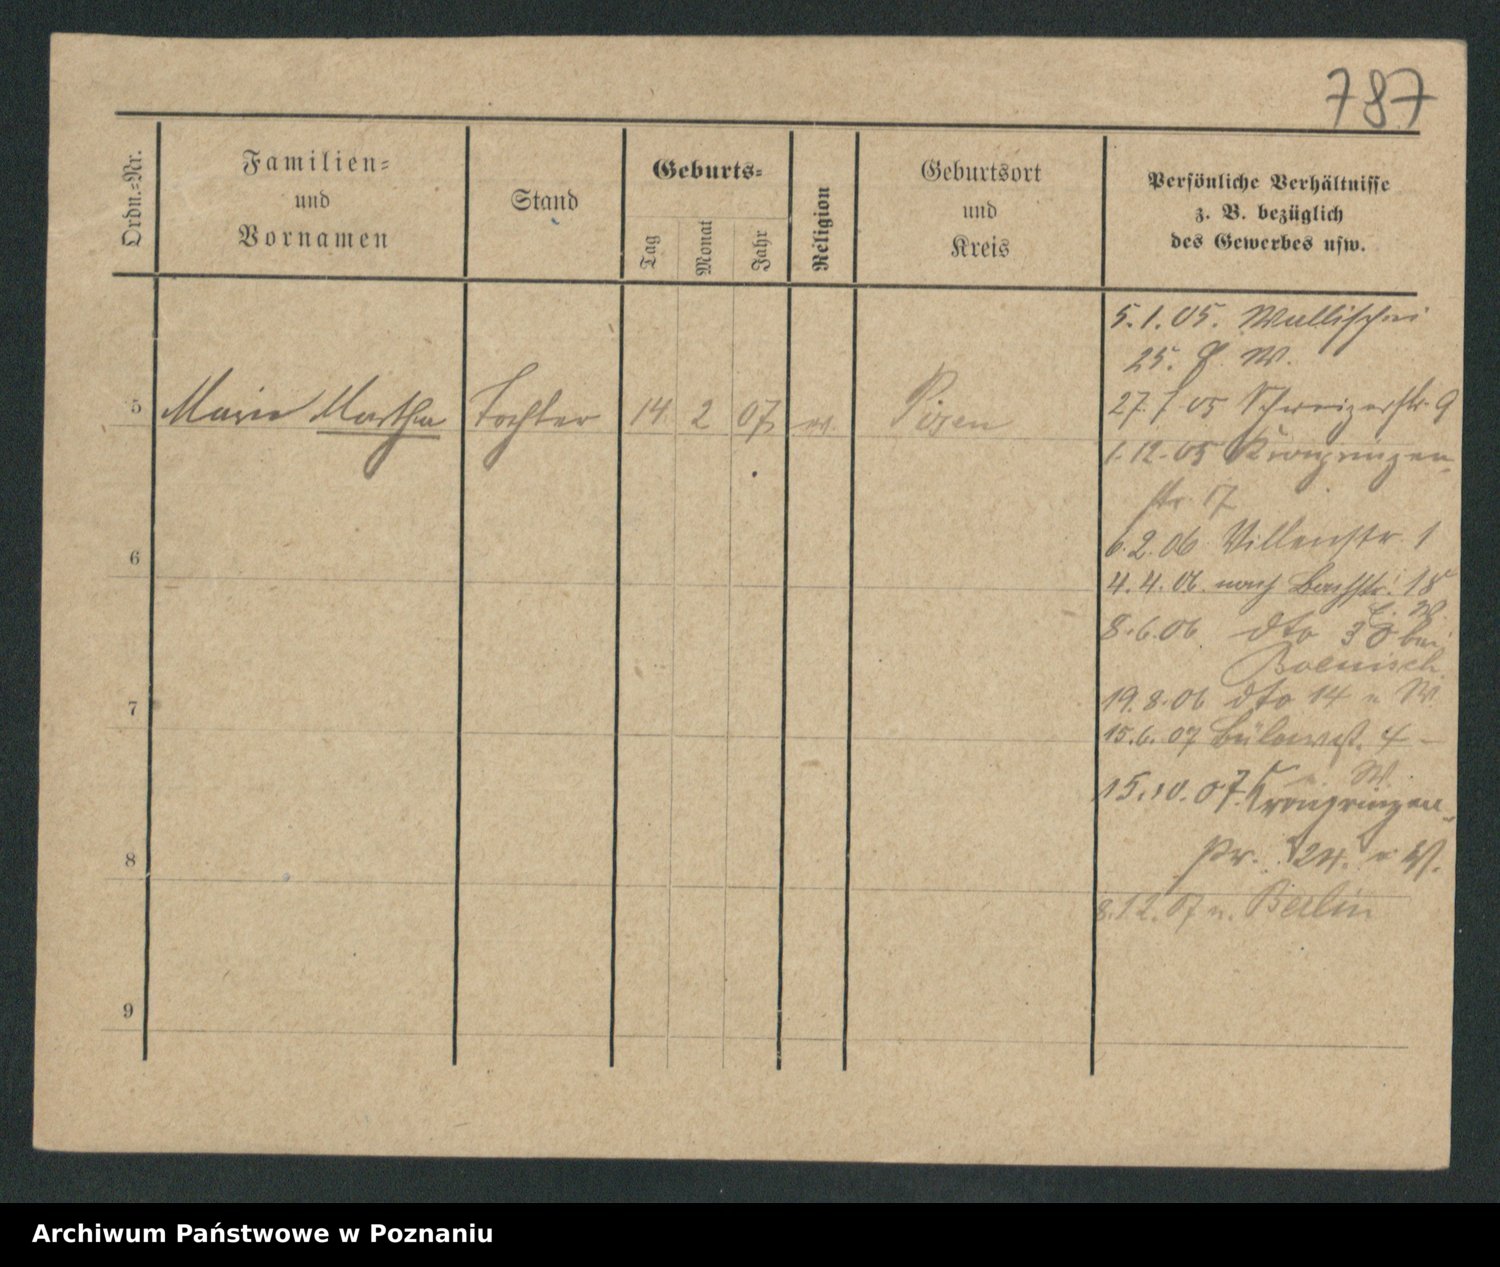 787
Ordn.=Nr.
Familien=
und
Vornamen
Stand
Geburts=
Tag
Monat
Jahr
Religion
Geburtsort
und
Kreis
Persönliche Verhältnisse
z. B. bezüglich
des Gewerbes usw.
5 Marie Martha Tochter 14 2 07 Posen
6
7
8
9
5.1.05. Wallischei
25. W.
27. 05 Schweizerstr. 9
1.12.05 Kronprinzen-
str. 17
6.2.06 Villenstr. 1
4.4.06. nach Bachstr. 18
W.
8.6.06 dto 30 bei
19.8.06 dto 14 W
15.6.07 Bülowst. 4 –
W.
15.10.07 Kronprinzen-
str. 24. W.
8.12.07 n. Berlin
Archiwum Państwowe w Poznaniu